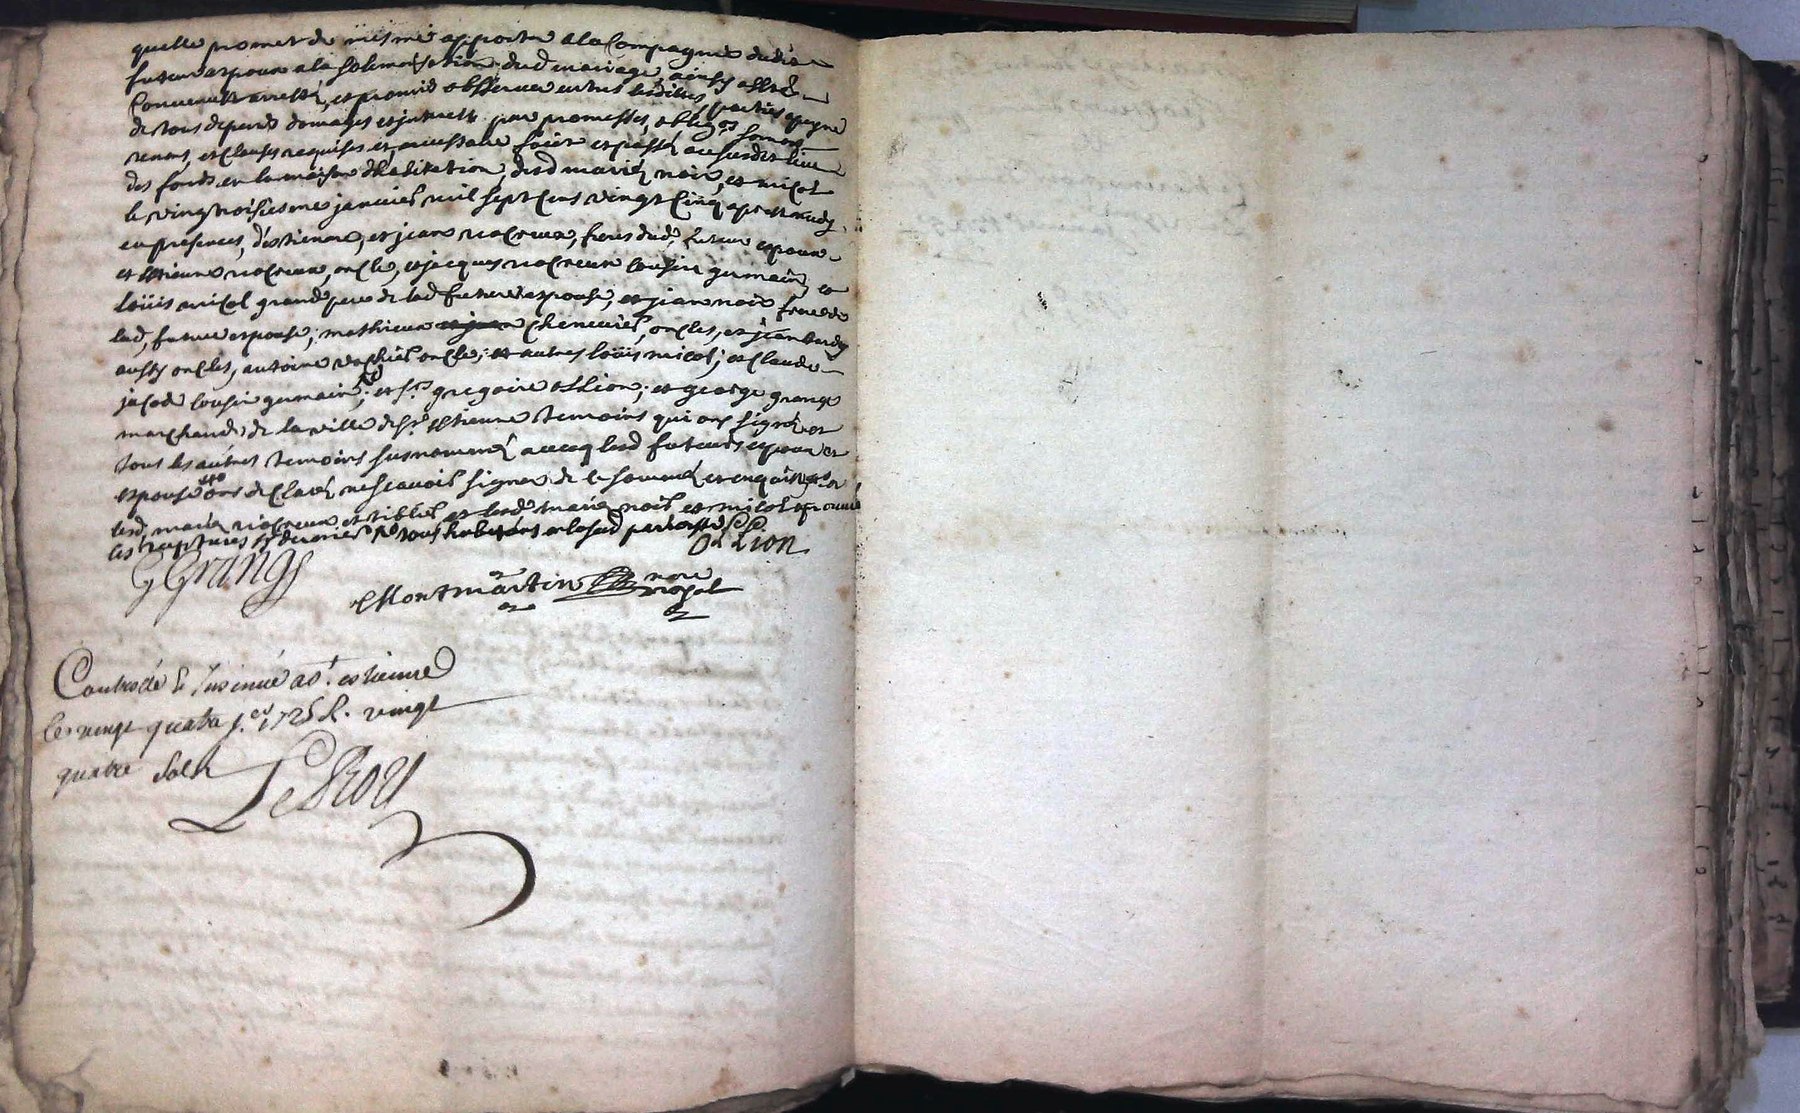 quelle promet de mesme apporter a la Compagnie dudit
futur espoux a la solemnisation dud mariage, ainsy
Convenu et arresté, et promis observer entre lesdittes parties a peyne
de tous depends domages et jnterests par promesses, oblig.ons
renons, et Clauses requises et necessaire fait et passé au susdit lieu
des fonds en la maison d'habitation, desd mariés noir, et micol
le vingtroisiesme janvier mil sept Cens vingt Cinq apres midy
en presences, d'estienne, et jean riocreux, freres dud. futur espoux
et estienne riocreux, oncle, et jacques riocreux Cousin germain, et
Loüis micol grand pere de lad future espouse, et jean noir frere de
lad, future espouse; mathieux Cheneviés, oncles, et jean
aussy oncles, antoine oncle; et autres loüis micol; et Claude
jacod Cousin germain; et s.rs gregoire ollion; et george grange
marchands de la ville de s.t estienne temoins qui ont signé, et
tous les autres temoins susnommé avecq lesd futeurs espoux et
espouse ont declaré ne scavoir signer de ce sommé et enquis
lesd, mariés riocreux et tiblet et lesd mariés noir et micol
les ruptures tous habitans
G Grange
Ollion
Montmartin no.re royal
Controllé & Jnsinué a s.t estienne
le vingt quatre j.er 1725 R. vingt
quatre sols